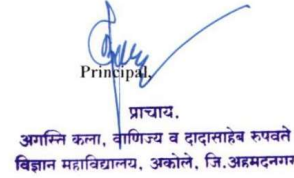 Principal,
प्राचाय.
अगस्ति कला, वाणिज्य व दादासाहेब रुपवते
विज्ञान महाविद्यालय, अकोले, जि.अहमदनगर